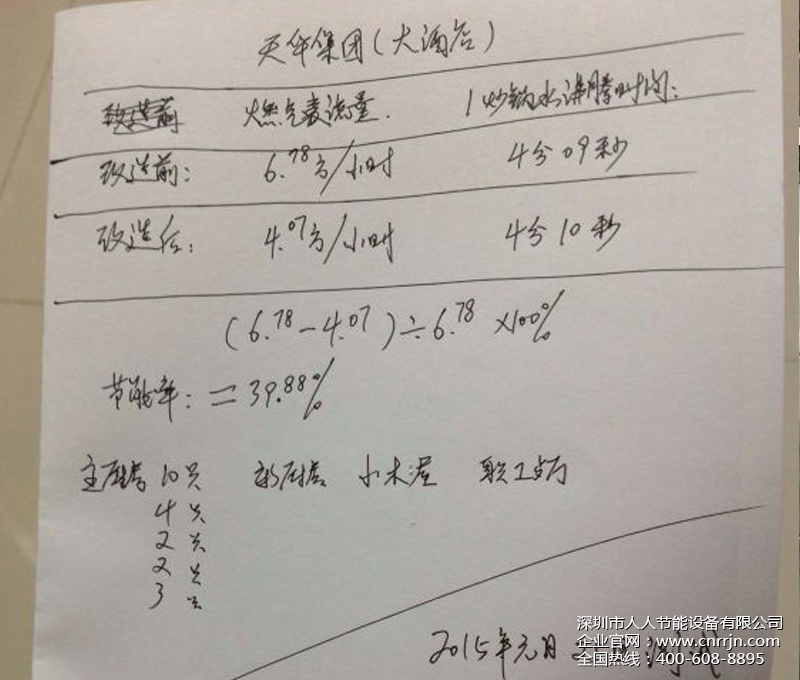 天华集团(大酒店)
改造前 燃气表流量. 1炒锅水沸腾时间:
改造前: 6.78方/小时 4分09秒
改造后: 4.07方/小时 4分10秒
(6.78-4.07)÷6.78 ×100%
节能率: =39.88%
主厨房 10只 新厨房 小木屋 职工餐厅
4只
2只
2只
3只
2015年元月
深圳市人人节能设备有限公司
企业官网:www.cnrrjn.com
全国热线:400-608-8895